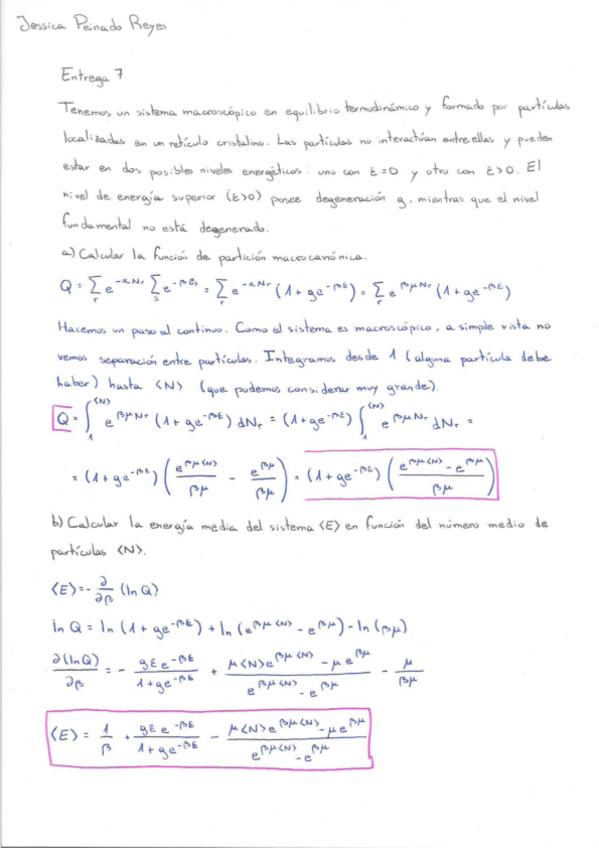 Jessica Peinado Reyes
Entrega 7
Tenemos un sistema macroscópico en equilibrio termodinámico y formado por partículas
localizadas en un retículo cristalino. Las partículas no interactúan entre ellas y pueden
estar en dos posibles niveles energéticos: uno con E=0 y otro con E>0. El
nivel de energía superior (E>0) posee degeneración g, mientras que el nivel
fundamental no está degenerado.
a) Calcular la función de partición macrocanónica.
Q = Σ_r e^{-αN_r} Σ_s e^{-βE_s} = Σ_r e^{-αN_r} (1+ge^{-βE}) = Σ_r e^{βμN_r} (1+ge^{-βE})
Hacemos un paso al continuo. Como el sistema es macroscópico, a simple vista no
vemos separación entre partículas. Integramos desde 1 (alguna partícula debe
haber) hasta ⟨N⟩ (que podemos considerar muy grande).
Q = ∫_1^{⟨N⟩} e^{βμN_r} (1+ge^{-βE}) dN_r = (1+ge^{-βE}) ∫_1^{⟨N⟩} e^{βμN_r} dN_r =
= (1+ge^{-βE}) (e^{βμ⟨N⟩}/βμ - e^{βμ}/βμ) = (1+ge^{-βE}) ((e^{βμ⟨N⟩} - e^{βμ})/βμ)
b) Calcular la energía media del sistema ⟨E⟩ en función del número medio de
partículas ⟨N⟩.
⟨E⟩ = - ∂/∂β (ln Q)
ln Q = ln (1+ge^{-βE}) + ln (e^{βμ⟨N⟩} - e^{βμ}) - ln (βμ)
∂(ln Q)/∂β = - gEe^{-βE}/(1+ge^{-βE}) + (μ⟨N⟩e^{βμ⟨N⟩} - μe^{βμ})/(e^{βμ⟨N⟩} - e^{βμ}) - μ/βμ
⟨E⟩ = 1/β + gEe^{-βE}/(1+ge^{-βE}) - (μ⟨N⟩e^{βμ⟨N⟩} - μe^{βμ})/(e^{βμ⟨N⟩} - e^{βμ})